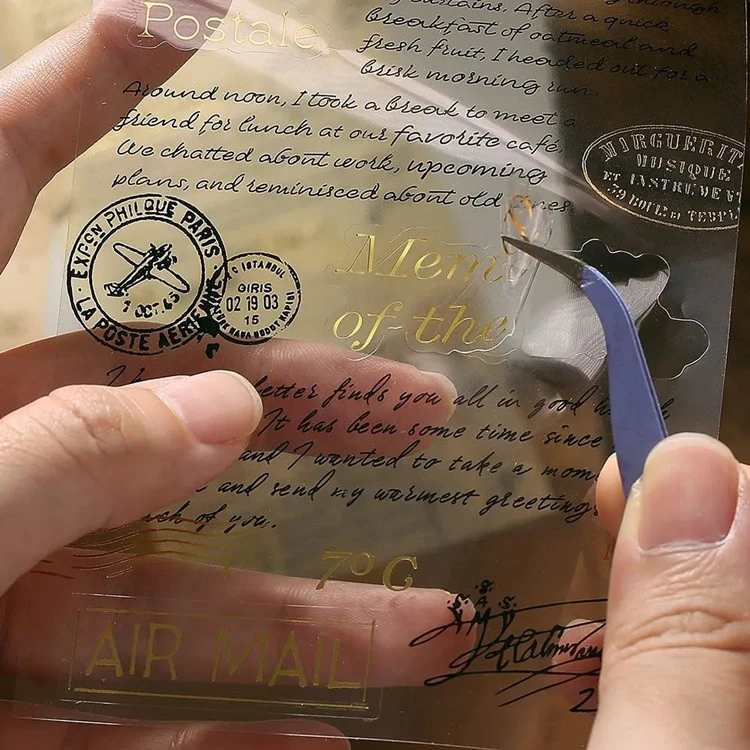 Postale
through
curtains. After a quick
breakfast of oatmeal and
fresh fruit, I headed out for a
brisk morning run.
Around noon, I took a break to meet a
friend for lunch at our favorite café.
We chatted about work, upcoming
plans, and reminisced about old
MUSIQUE
EXPON PHILQUE PARIS
7 OCT. 43
LA POSTE AERIENNE
ISTANBUL
GIRIS
02 19 03
15
Mem
of the
letter finds you all in good
It has been some time since
and I wanted to take a mom
and send my warmest greetings
each of you.
7º C
AIR MAIL
2